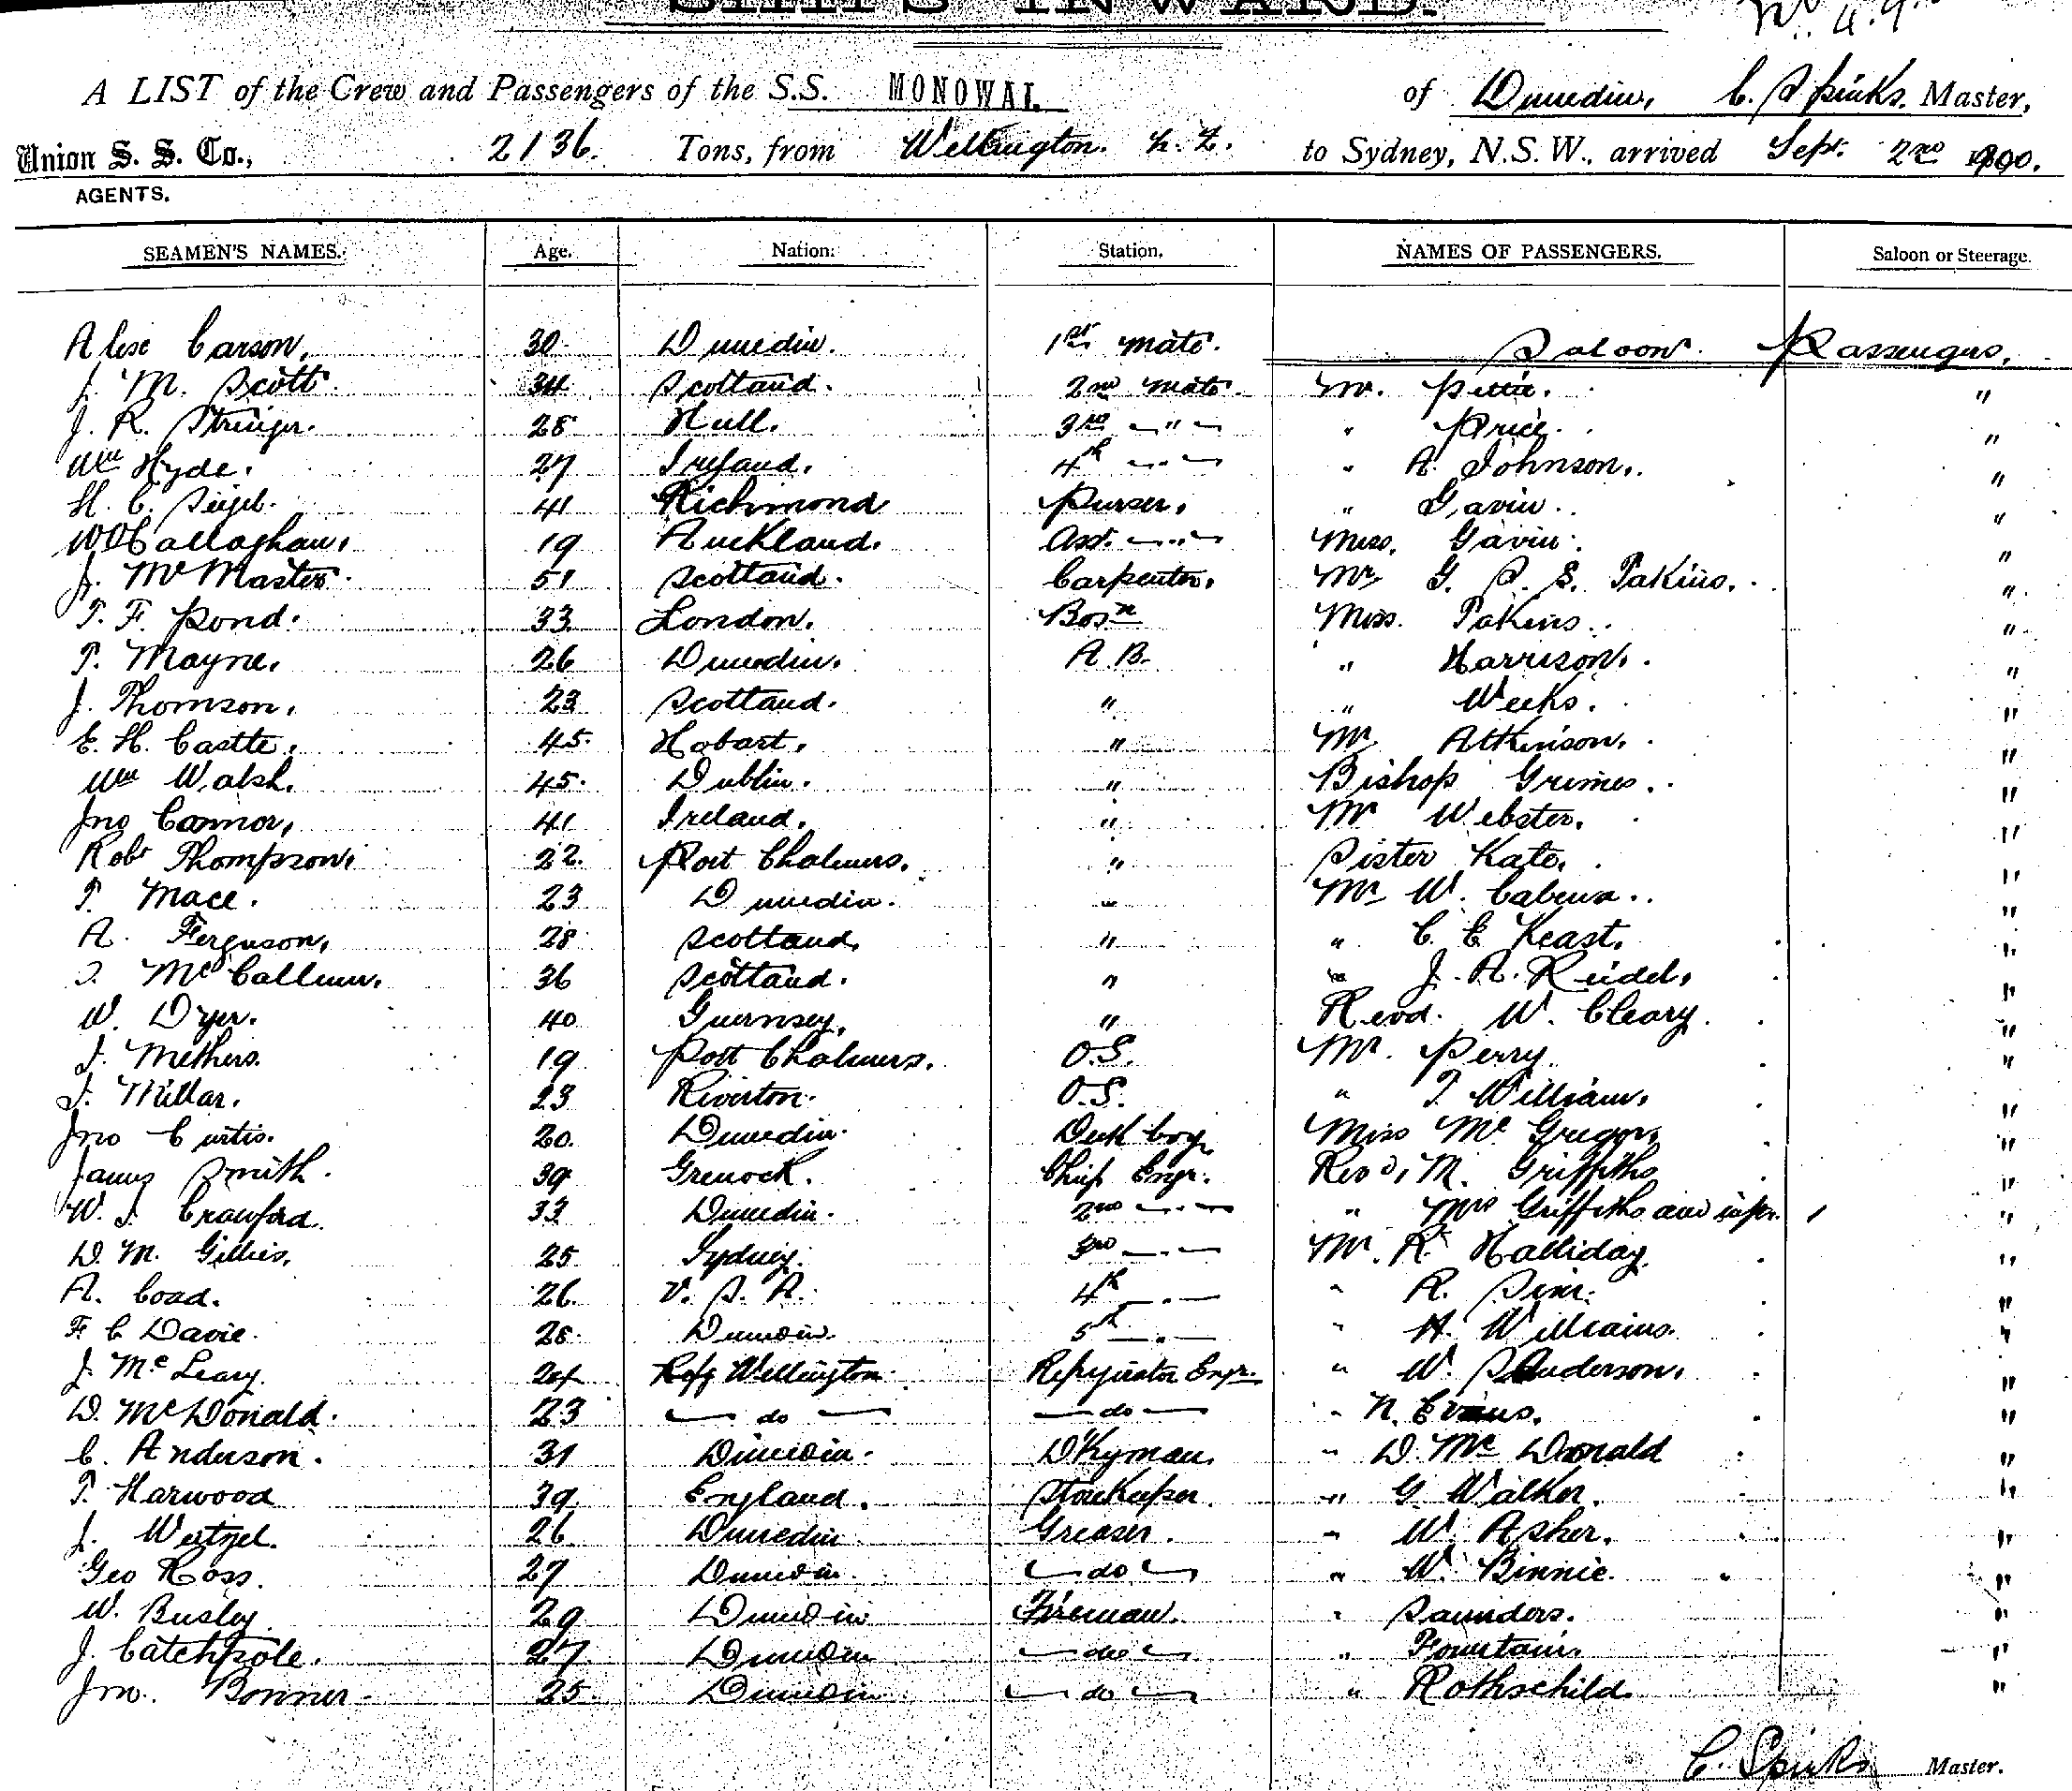 SHIPS INWARD.
A LIST of the Crew and Passengers of the S.S. MONOWAI. of Dunedin, C. Spinks. Master,
Union S. S. Co., 2136. Tons, from Wellington. N. Z. to Sydney, N.S.W., arrived Sept. 2nd 1900.
AGENTS.
SEAMEN'S NAMES. Age. Nation. Station. NAMES OF PASSENGERS. Saloon or Steerage.
Carson. 30. Dunedin. 1st mate. Saloon Passengers.
J. M. Scott. 34 Scotland. 2nd mate. Mr. Pettie. "
J. R. Stringer. 28 Hull. 3rd " " Price. "
Wm Hyde. 27 Ireland. 4th " " A. Johnson. "
H. C. 41 Richmond Purser. " Gavin. "
W Callaghan. 19 Auckland. Asst. " Miss. Gavin. "
J. McMaster. 51 Scotland. Carpenter. Mr G. S. S. "
T. F. Pond. 33 London. Bosn Miss. "
T. Mayne. 26 Dunedin. A.B. " Harrison. "
J. Thomson. 23 Scotland. " " Weeks. "
E. H. Castle. 45. Hobart. " Mr Atkinson. "
Wm Walsh. 45. Dublin. " Bishop Grimes. "
Jno Connor, 41 Ireland. " Mr Webster. "
Robt Thompson. 22. Port Chalmers. " Sister Kate. "
T. Mace. 23 Dunedin. " Mr W. "
A. Ferguson, 28 Scotland. " " C. E. Keast. "
McCallum. 36 Scotland. " " J. A. "
W. Dyer. 40 Guernsey. " Revd. W. Cleary. "
J. Methers. 19 Port Chalmers. O.S. Mr. Perry. "
J. Millar. 23 Riverton. O.S. " T. William. "
Jno Curtis. 20. Dunedin. Deck boy Miss McGregor. "
James Smith. 39 Grenock. Chief Engr. Revd. M. Griffiths "
W. J. Crawford. 33 Dunedin. 2nd " " Mrs Griffiths and infn. "
D. M. Gillies. 25 Sydney. 3rd " Mr. R. Halliday. "
A. Coad. 26. U. S. A. 4th " " R. Sim. "
F. C Davie. 28. Dunedin. 5th " " H. Williams. "
J. McLeary. 24 Wellington Refrigirator Engr. " W. Sanderson. "
D. McDonald. 23 do do " N. Evans. "
C. Anderson. 31 Dunedin. D'Kyman. " D. McDonald "
T. Harwood 39 England. StoreKeeper. " G. Walker. "
J. Wetzel. 26 Dunedin Greaser. " W. Asher. "
Geo Ross. 27 Dunedin. do " W. Binnie. "
W. Busley 29 Dunedin Fireman. " Saunders. "
J. Catchpole. 27 Dunedin do " Fountain. "
Jno. Bonner 25. Dunedin do " Rothschild. "
C. Spinks Master.